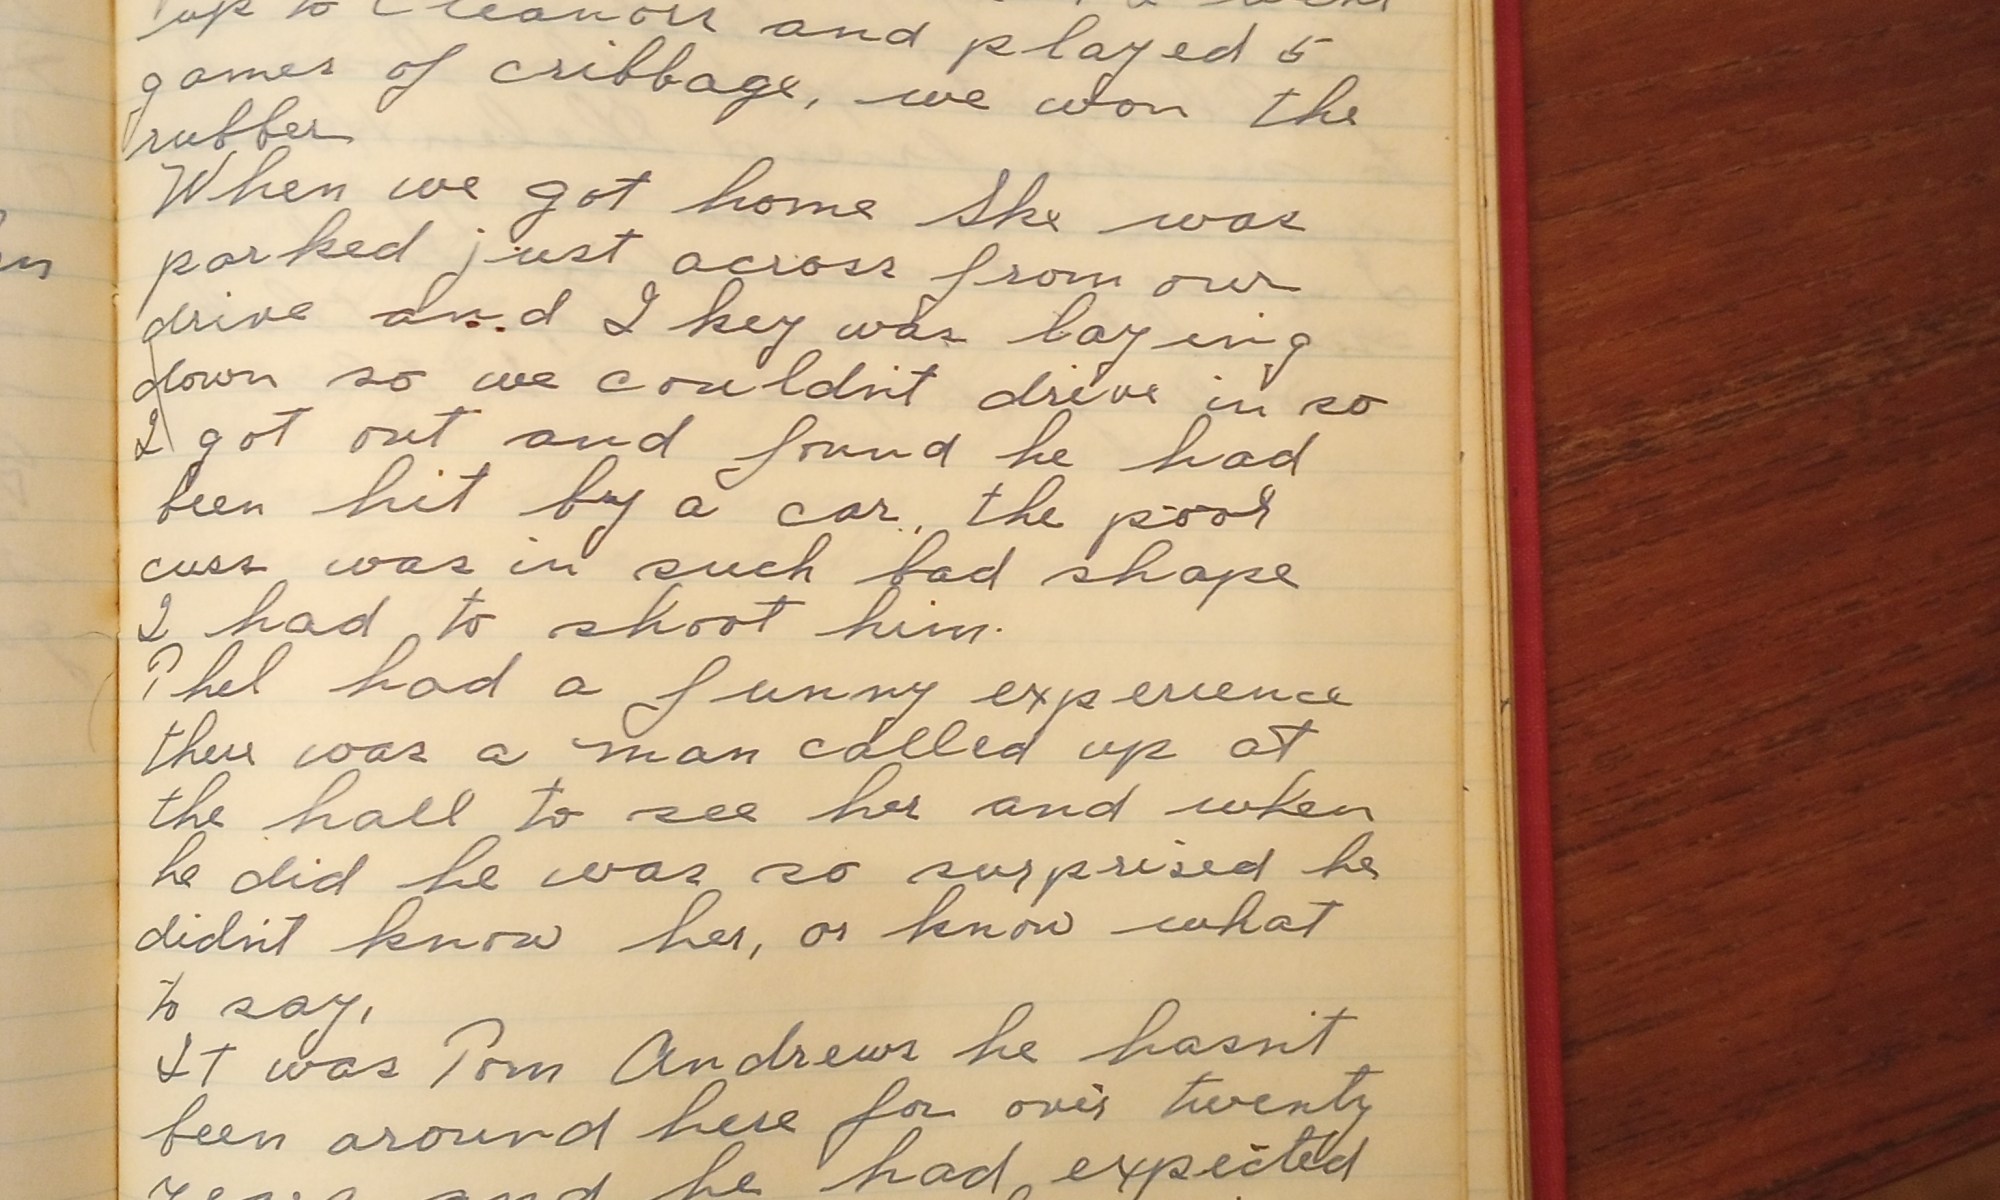 up to Eleanors and played 5
games of cribbage, we won the
rubber
When we got home She was
parked just across from our
drive and Ikey was laying
down so we couldn't drive in so
I got out and found he had
been hit by a car, the poor
cuss was in such bad shape
I had to shoot him.
Thel had a funny experience
there was a man called up at
the hall to see her and when
he did he was so surprised he
didn't know her, or know what
to say,
It was Tom Andrews he hasn't
been around here for over twenty
years and he had expected